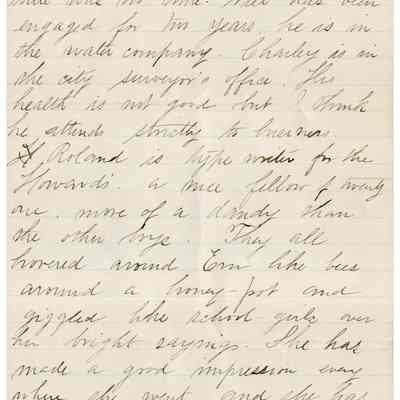 there was no one. Will has been
engaged for two years, he is in
the water company. Charley is in
the city surveyor's office. His
health is not good but I think
he attends strictly to business.
Roland is type writer for the
Howards. a nice fellow of twenty
one. more of a dandy than
the other boys. They all
hovered around Em like bees
around a honey-pot and
giggled like school girls over
her bright sayings. She has
made a good impression every
where she went and she has